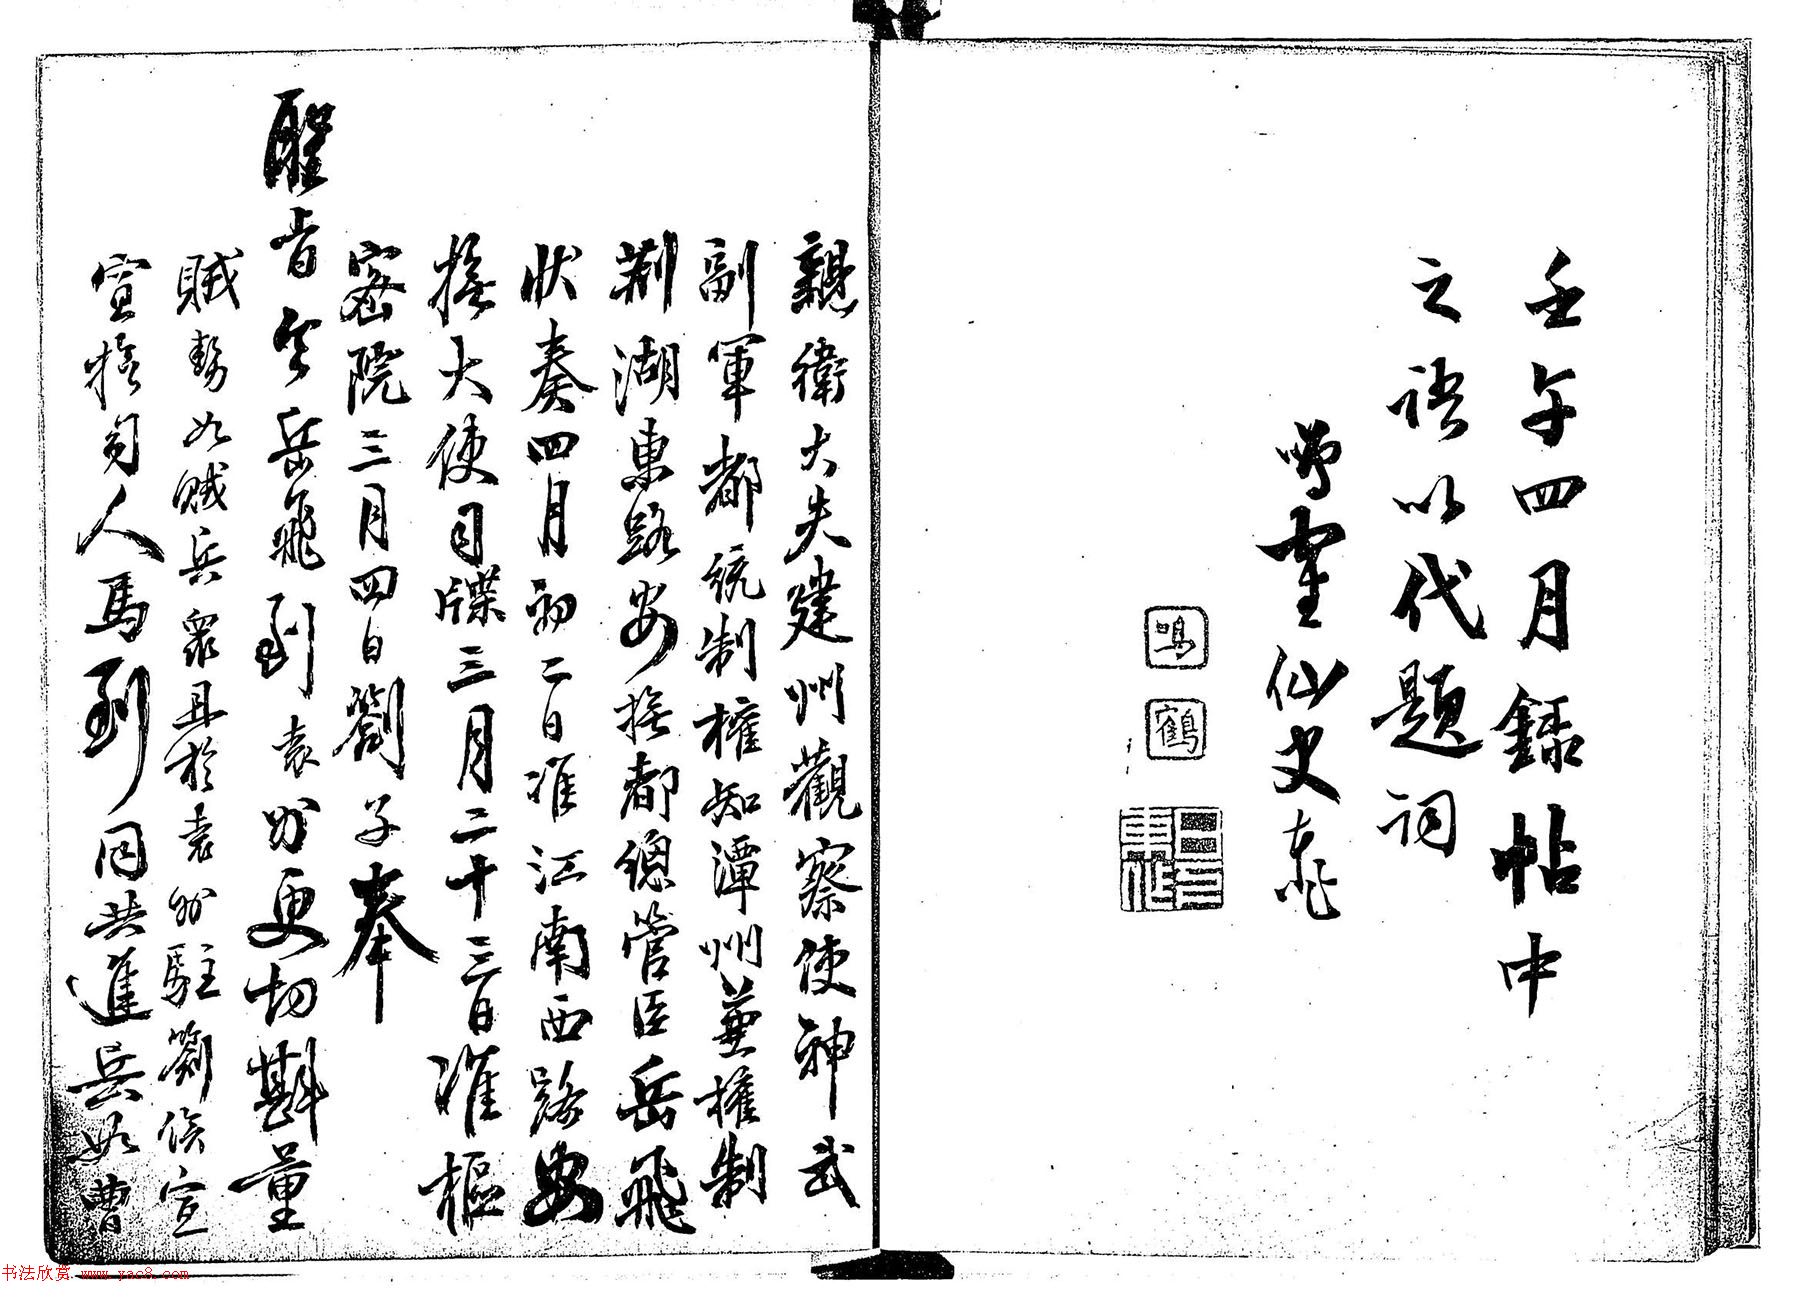 壬午四月錄帖中
之語以代題詞
靈仙史
鳴
鶴
親衛大夫建州觀察使神武
副軍都統制權知潭州兼權制
荊湖東路安撫都總管臣岳飛
狀奏四月初二日准江南西路安
撫大使司牒三月二十三日准樞
密院三月四日劄子奉
聖旨令岳飛到袁州更切斟量
賊勢如賊兵眾且於袁州駐劄俟宣
宣撫司人馬到同共進兵如曹
书法欣赏 www.yac8.com